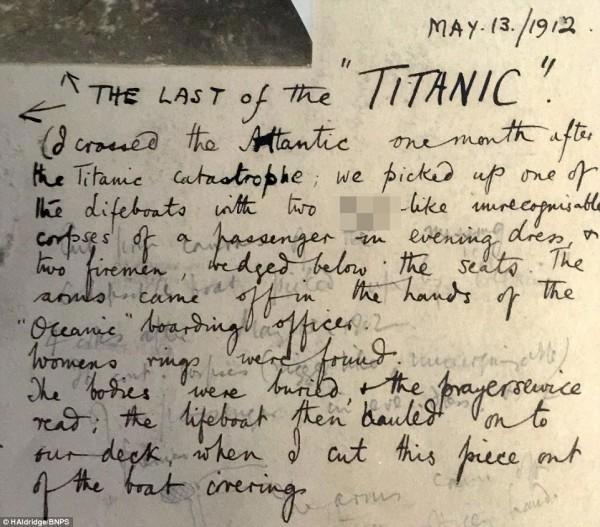 MAY.13./1912.
THE LAST of the "TITANIC".
(I crossed the Atlantic one month after
the Titanic catastrophe; we picked up one of
the lifeboats with two -like unrecognisable
corpses of a passenger in evening dress, &
two firemen, wedged below the seats. The
arms came off in the hands of the
"Oceanic" boarding officer.
Womens rings were found.
The bodies were buried, & the prayerservice
read; the lifeboat then hauled on to
our deck, when I cut this piece out
of the boat coverings
© HAldridge/BNPS